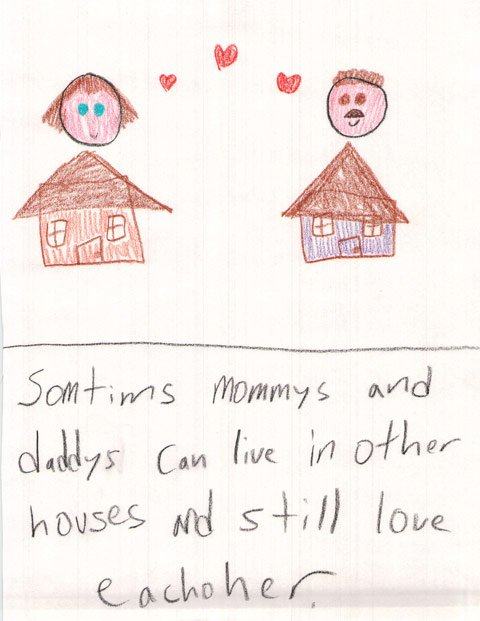 Somtims mommys and
daddys can live in other
houses and still love
eachoher.